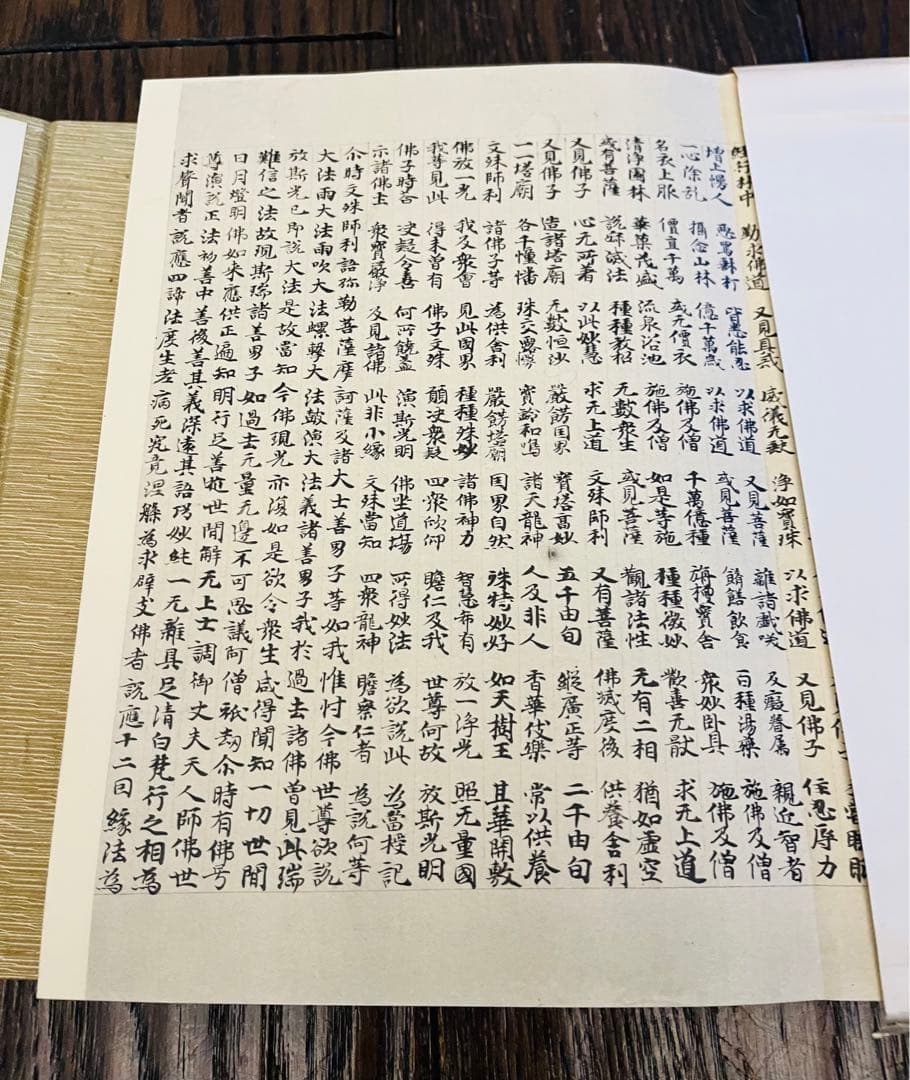 經行林中 勤求佛道 又見具戒 威儀无缺 淨如寶珠 以求佛道 又見佛子 住忍辱力
增上慢人 惡罵捶打 皆悉能忍 以求佛道 又見菩薩 離諸戲咲 及癡眷屬 親近智者
一心除乱 攝念山林 億千萬歲 以求佛道 或見菩薩 餚饍飲食 百種湯藥 施佛及僧
名衣上服 價直千萬 或无價衣 施佛及僧 千萬億種 旃檀寶舍 衆妙卧具 施佛及僧
清淨園林 華菓茂盛 流泉浴池 施佛及僧 如是等施 種種微妙 歡喜无猒 求无上道
或有菩薩 說寂滅法 種種教詔 无數衆生 或見菩薩 觀諸法性 无有二相 猶如虛空
又見佛子 心无所著 以此妙慧 求无上道 文殊師利 又有菩薩 佛滅度後 供養舍利
又見佛子 造諸塔廟 无數恒沙 嚴飾国界 寶塔高妙 五千由旬 縱廣正等 二千由旬
一一塔廟 各千幢幡 珠交露幔 寶鈴和鳴 諸天龍神 人及非人 香華伎樂 常以供養
文殊師利 諸佛子等 為供舍利 嚴飾塔廟 国界自然 殊特妙好 如天樹王 其華開敷
佛放一光 我及衆會 見此國界 種種殊妙 諸佛神力 智慧希有 放一淨光 照无量國
我等見此 得未曾有 佛子文殊 願决衆疑 四衆欣仰 瞻仁及我 世尊何故 放斯光明
佛子時荅 决疑令喜 何所饒益 演斯光明 佛坐道場 所得妙法 為欲說此 為當授記
示諸佛土 衆寶嚴淨 及見諸佛 此非小緣 文殊當知 四衆龍神 瞻察仁者 為說何等
尒時文殊師利語弥勒菩薩摩訶薩及諸大士善男子等如我惟忖今佛世尊欲說
大法雨大法雨吹大法螺擊大法鼓演大法義諸善男子我於過去諸佛曾見此瑞
放斯光已即說大法是故當知今佛現光亦復如是欲令衆生咸得聞知一切世間
難信之法故現斯瑞諸善男子如過去无量无邊不可思議阿僧祇劫尒時有佛号
日月燈明佛如來應供正遍知明行足善逝世間解无上士調御丈夫天人師佛世
尊演說正法初善中善後善其義深遠其語巧妙純一无雜具足清白梵行之相為
求聲聞者說應四諦法度生老病死究竟涅槃為求辟支佛者說應十二因緣法為